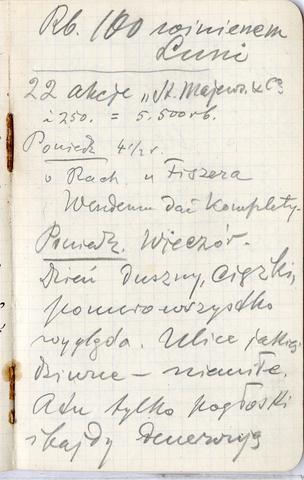 Rb. 100 winienem
Luni
22 akcje „St. Majew. & Co
à 250. = 5.500 rb.
Poniedz 4½ r.
u Rach. u Fiszera
Wendemu dać komplety
Poniedz. Wieczór.
Dzień duszny, ciężki,
ponuro wszystko
wygląda. Ulice jakieś
dziwne – niemiłe.
A tu tylko pogłoski
i bajdy denerwują